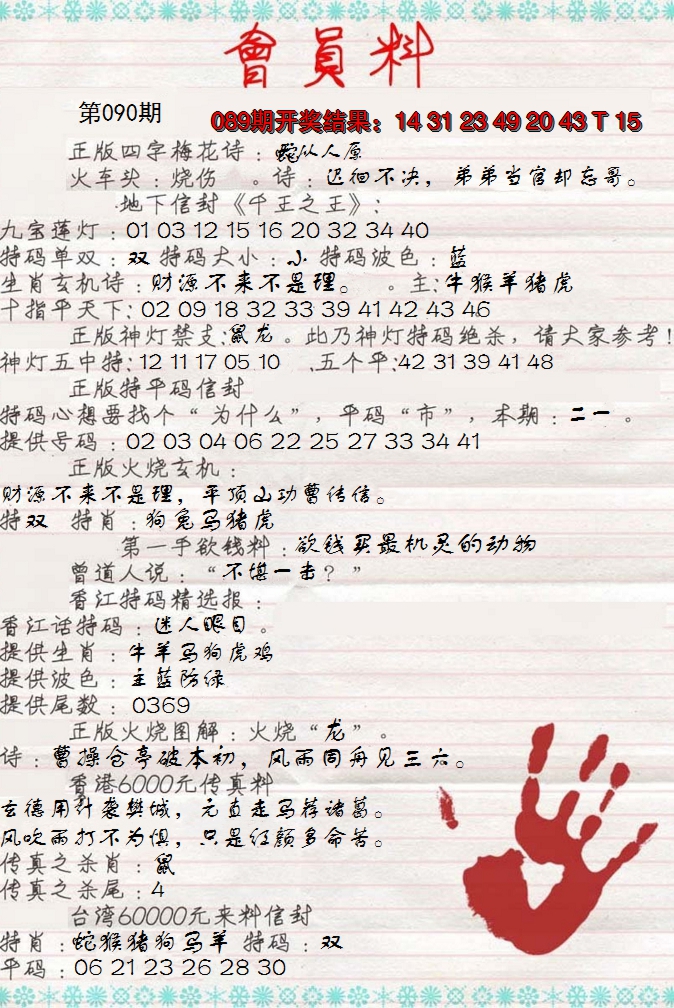 會員料
第090期
089期开奖结果：14 31 23 49 20 43 T 15
正版四字梅花诗：蛇从人原
火车头：烧伤 。诗：迟徊不决，弟弟当官却忘哥。
地下信封《千王之王》：
九宝莲灯：01 03 12 15 16 20 32 34 40
特码单双：双 特码大小：小 特码波色：蓝
生肖玄机诗：财源不来不是理。 。主:牛猴羊猪虎
十指平天下: 02 09 18 32 33 39 41 42 43 46
正版神灯禁支:鼠龙。此乃神灯特码绝杀，请大家参考!
神灯五中特:12 11 17 05 10 .五个平:42 31 39 41 48
正版特平码信封
特码心想要找个“为什么”，平码“市”，本期：二一。
提供号码：02 03 04 06 22 25 27 33 34 41
正版火烧玄机：
财源不来不是理，平顶山功曹传信。
特双 特肖：狗兔马猪虎
第一手欲钱料：欲钱买最机灵的动物
曾道人说：“不堪一击？”
香江特码精选报：
香江话特码：迷人眼目。
提供生肖：牛羊马狗虎鸡
提供波色：主蓝防绿
提供尾数：0369
正版火烧图解：火烧“龙”。
诗：曹操仓亭破本初，风雨同舟见三六。
香港6000元传真料
玄德用计袭樊城，元直走马荐诸葛。
风吹雨打不为惧，只是红颜多命苦。
传真之杀肖：鼠
传真之杀尾：4
台湾60000元来料信封
特肖：蛇猴猪狗马羊 特码：双
平码：06 21 23 26 28 30